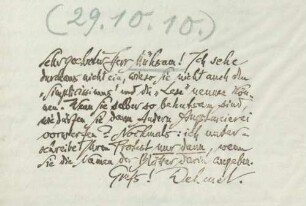 (29.10.10.)
Sehr geehrter Herr Mühsam! Ich sehe
durchaus nicht ein, wieso Sie nicht auch den
„Simplicissimus" und die „Lese" nennen kön-
nen. Wenn Sie selber so behutsam sind,
wie dürfen Sie dann Andern
vorwerfen? Nochmals: ich unter-
schreibe Ihren Protest nur dann, wenn
Sie die Namen der Blätter darin angeben.
Gruß! Dehmel.